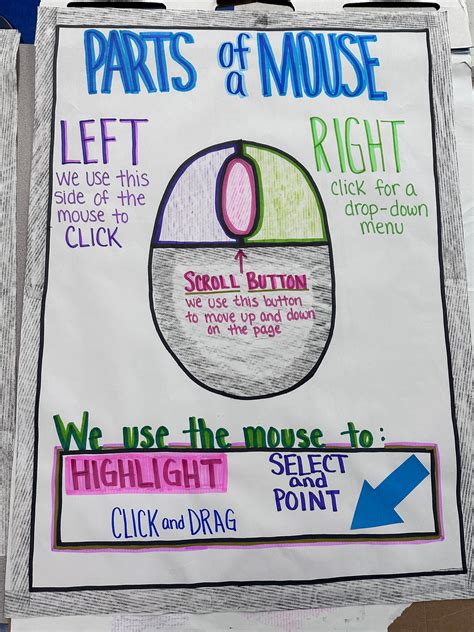 PARTS of a MOUSE
LEFT
we use this
side of the
mouse to
CLICK
RIGHT
click for a
drop-down
menu
SCROLL BUTTON
we use this button
to move up and down
on the page
We use the mouse to:
HIGHLIGHT
CLICK and DRAG
SELECT
and
POINT